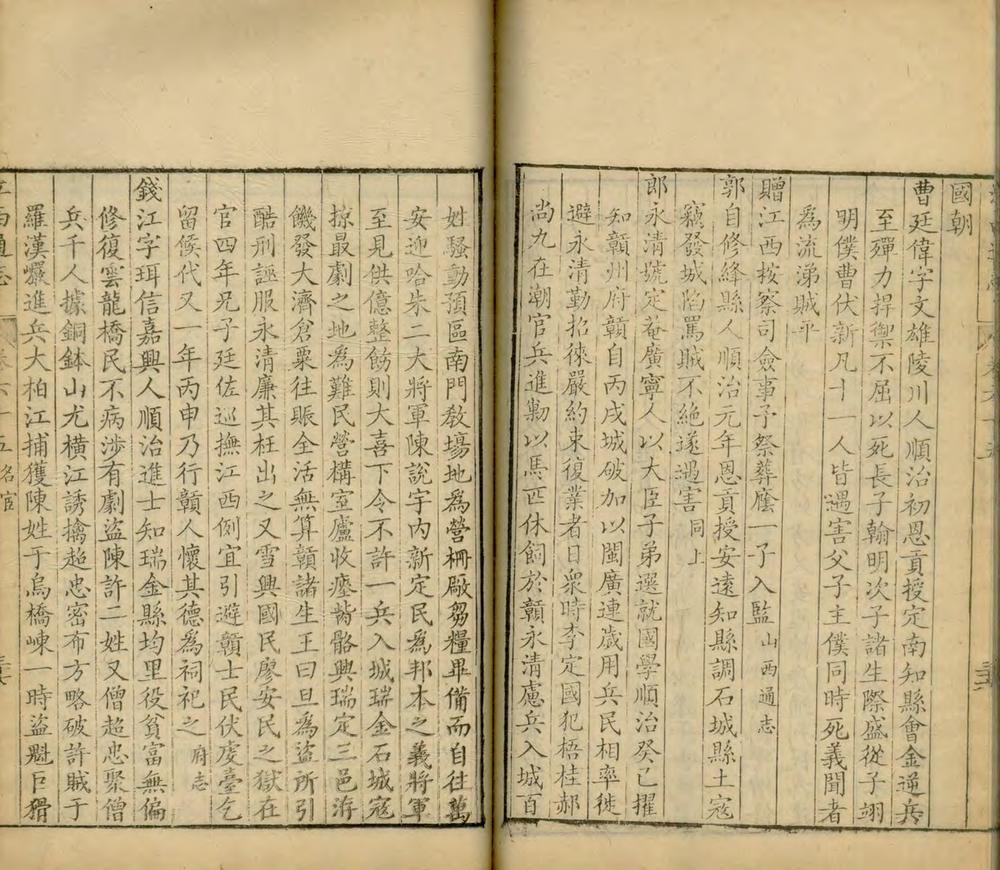 國朝
曹廷偉字文雄陵川人順治初恩貢授定南知縣會金逆兵
至殫力捍禦不屈以死長子翰明次子諸生際盛從子翊
明僕曹伏新凡十一人皆遇害父子主僕同時死義聞者
為流涕賊平
贈江西按察司僉事予祭葬廕一子入監山西通志
郭自修絳縣人順治元年恩貢授安遠知縣調石城縣土寇
竊發城陷罵賊不絕遂遇害同上
郎永清號定菴廣寧人以大臣子弟選就國學順治癸巳擢
知贛州府贛自丙戌城破加以閩廣連歲用兵民相率徙
避永清勤招徠嚴約束復業者日衆時李定國犯梧桂郝
尚九在潮官兵進勦以馬匹休飼於贛永清慮兵入城百
姓騷動預區南門敎塲地為營柵廠芻糧畢備而自往萬
安迎哈朱二大將軍陳說宇內新定民為邦本之義將軍
至見供億整飭則大喜下令不許一兵入城瑞金石城寇
掠最劇之地為難民營構室廬收瘞胔骼興瑞定三邑洊
饑發大濟倉粟往賑全活無算贛諸生王曰旦為盜所引
酷刑誣服永清廉其枉出之又雪興國民廖安民之獄在
官四年兄子廷佐巡撫江西例宜引避贛士民伏虔臺乞
留候代又一年丙申乃行贛人懷其德為祠祀之府志
錢江字珥信嘉興人順治進士知瑞金縣均里役貧富無偏
修復雲龍橋民不病涉有劇盜陳許二姓又僧超忠聚僧
兵千人據銅鉢山尤橫江誘擒超忠密布方略破許賊于
羅漢巖進兵大柏江捕獲陳姓于烏橋崠一時盜魁巨猾
卷六十五名宦